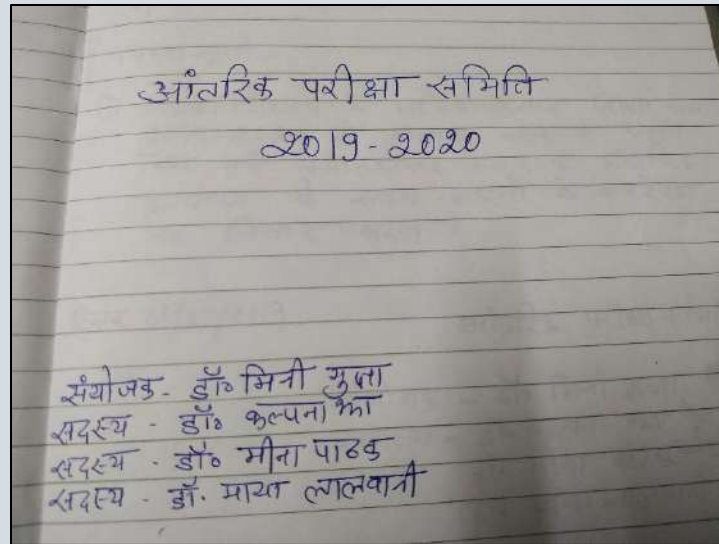 आंतरिक परीक्षा समिति
2019-2020
संयोजक- डॉ० मिनी गुप्ता
सदस्य - डॉ० कल्पना झा
सदस्य - डॉ० मीना पाठक
सदस्य - डॉ. माया लालवानी